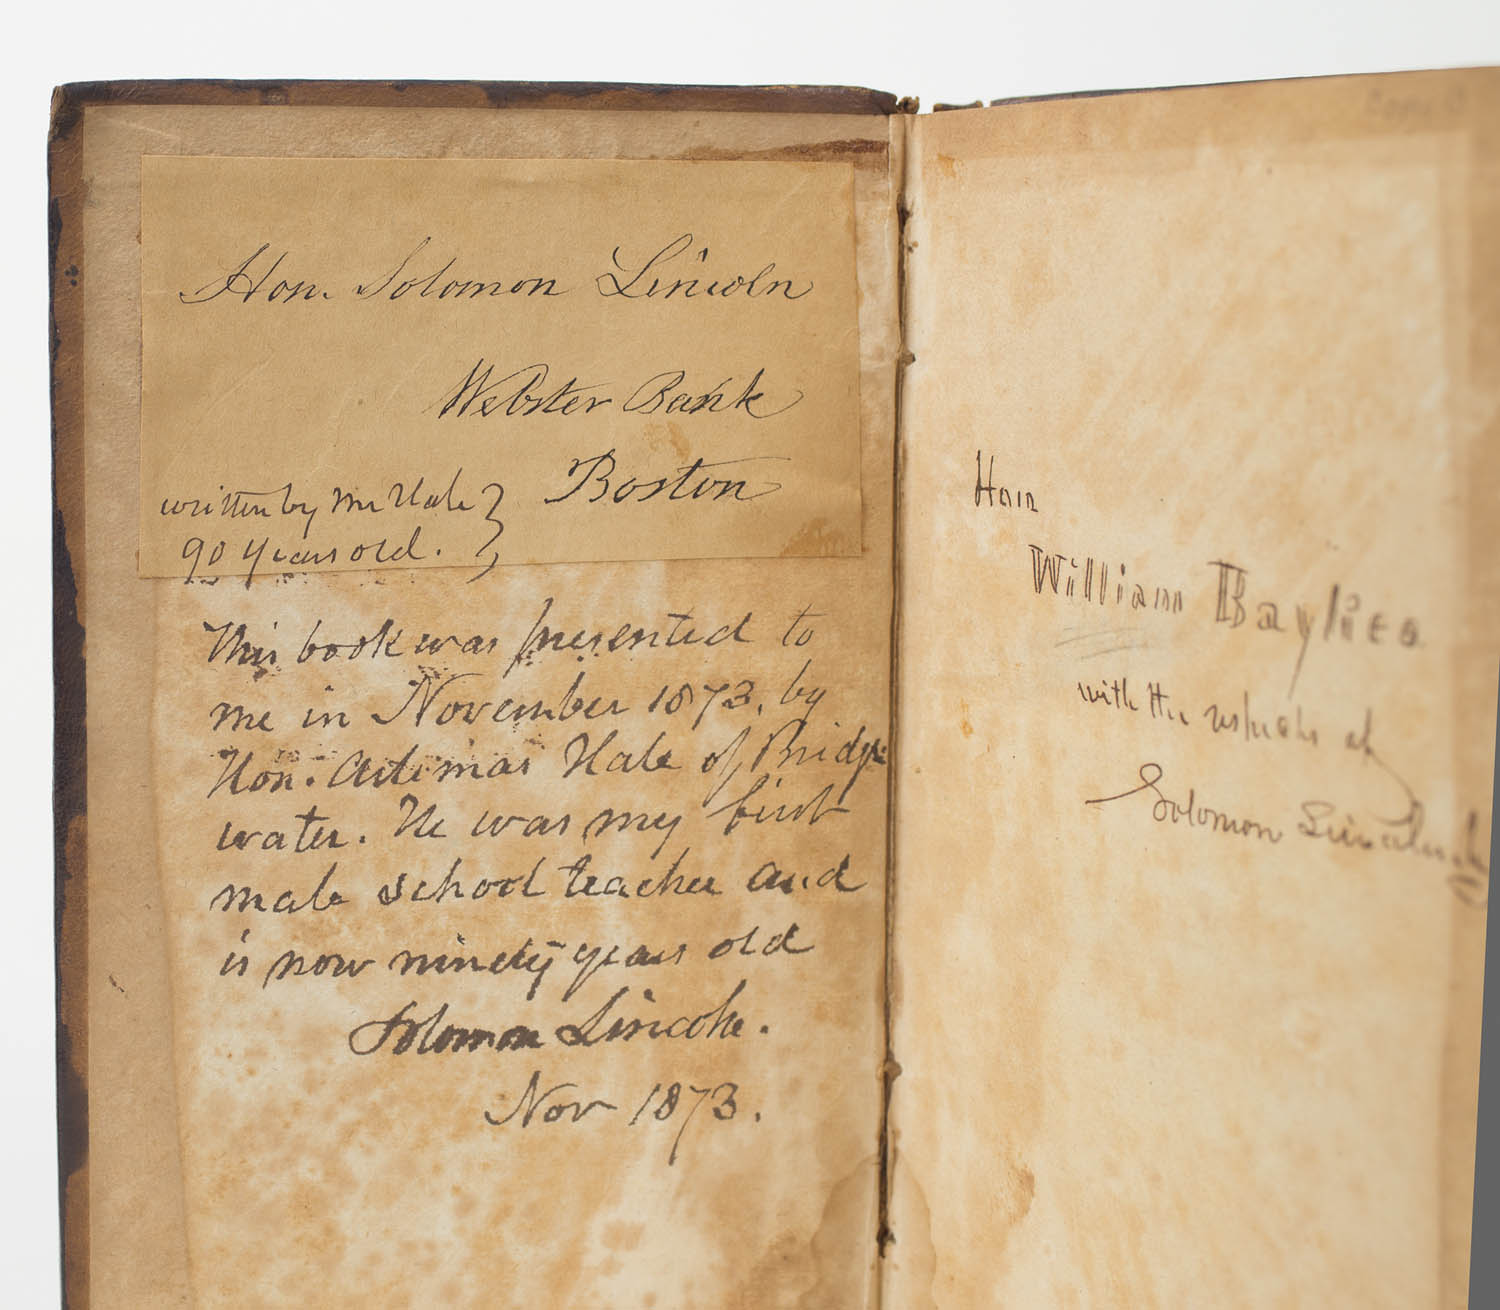 Hon. Solomon Lincoln
Webster Bank
Boston
written by Mr Hale
90 years old.
This book was presented to
me in November 1873, by
Hon. Artemas Hale of Bridge
water. He was my first
male school teacher and
is now ninety years old
Solomon Lincoln.
Nov 1873.
Hon
William Baylies
with the respects of
Solomon Lincoln